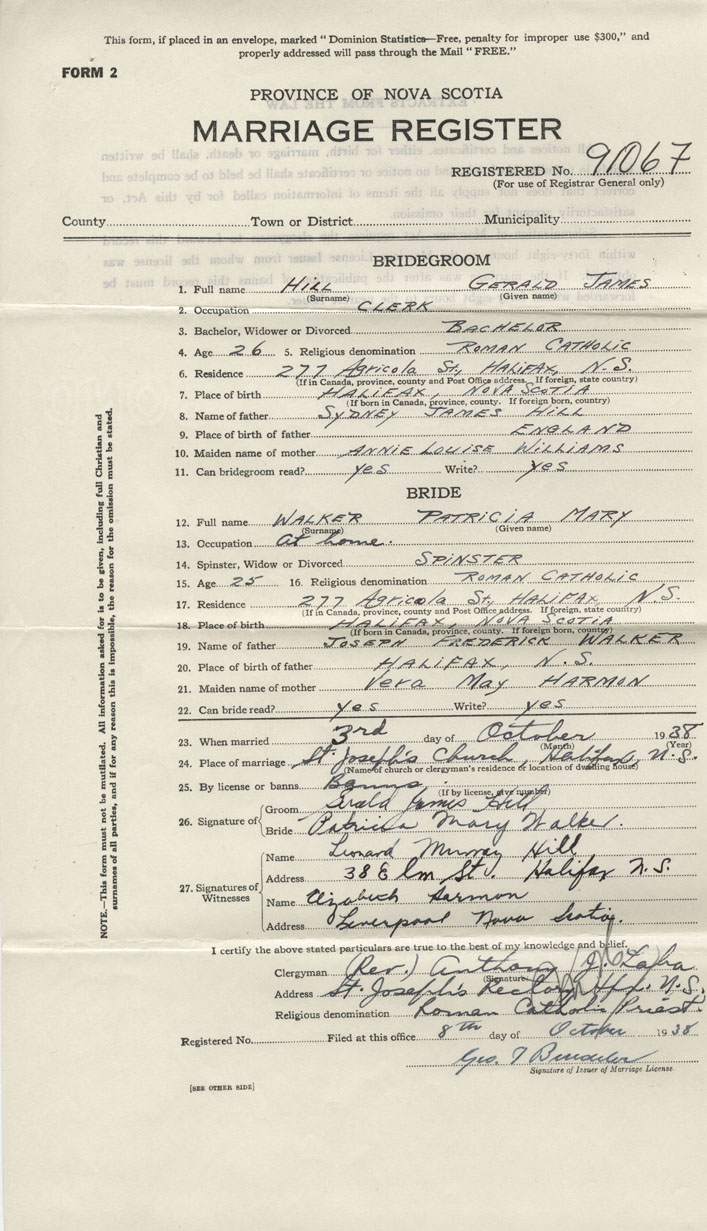 This form, if placed in an envelope, marked "Dominion Statistics—Free, penalty for improper use $300," and
properly addressed will pass through the Mail "FREE."
FORM 2
PROVINCE OF NOVA SCOTIA
MARRIAGE REGISTER
REGISTERED No. 91067
(For use of Registrar General only)
County Town or District Municipality
BRIDEGROOM
1. Full name HILL GERALD JAMES
(Surname) (Given name)
2. Occupation CLERK
3. Bachelor, Widower or Divorced BACHELOR
4. Age 26 5. Religious denomination ROMAN CATHOLIC
6. Residence 277 Agricola St, HALIFAX, N.S.
(If in Canada, province, county and Post Office address. If foreign, state country)
7. Place of birth HALIFAX, NOVA SCOTIA
(If born in Canada, province, county. If foreign born, country)
8. Name of father SYDNEY JAMES HILL
9. Place of birth of father ENGLAND
10. Maiden name of mother ANNIE LOUISE WILLIAMS
11. Can bridegroom read? yes Write? yes
BRIDE
12. Full name WALKER PATRICIA MARY
(Surname) (Given name)
13. Occupation At home.
14. Spinster, Widow or Divorced SPINSTER
15. Age 25 16. Religious denomination ROMAN CATHOLIC
17. Residence 277 Agricola St, HALIFAX N.S.
(If in Canada, province, county and Post Office address. If foreign, state country)
18. Place of birth HALIFAX, NOVA SCOTIA
(If born in Canada, province, county. If foreign born, country)
19. Name of father JOSEPH FREDERICK WALKER
20. Place of birth of father HALIFAX, N.S.
21. Maiden name of mother Vera May HARMON
22. Can bride read? yes Write? yes
23. When married 3rd day of October 1938
(Month) (Year)
24. Place of marriage St. Joseph's Church, Halifax, N.S.
(Name of church or clergyman's residence or location of dwelling house)
25. By license or banns Banns
(If by license, give number)
26. Signature of Groom Gerald James Hill
Bride Patricia Mary Walker.
27. Signatures of Witnesses Name Leonard Murray Hill
Address 38 Elm St. Halifax N.S.
Name Elizabeth Harmon
Address Liverpool Nova Scotia.
I certify the above stated particulars are true to the best of my knowledge and belief.
Clergyman (Rev.) Anthony J.
(Signature)
Address St. Joseph's Rectory Hfx. N.S.
Religious denomination Roman Catholic Priest
Registered No. Filed at this office 8th day of October 1938
Geo.
Signature of Issuer of Marriage License.
[SEE OTHER SIDE]
NOTE.—This form must not be mutilated. All information asked for is to be given, including full Christian and
surnames of all parties, and if for any reason this is impossible, the reason for the omission must be stated.